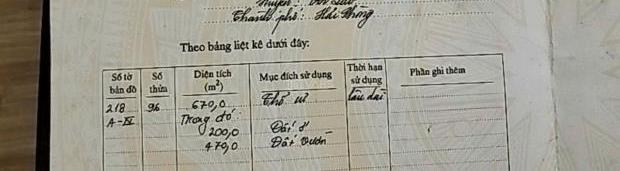 Thành phố: Hải Phòng
Theo bảng liệt kê dưới đây:
Số tờ bản đồ | Số thửa | Diện tích (m²) | Mục đích sử dụng | Thời hạn sử dụng | Phần ghi thêm
218 | 96 | 670,0 | Thổ cư | lâu dài
A-IV | Trong đó:
200,0 | Đất ở
470,0 | Đất vườn